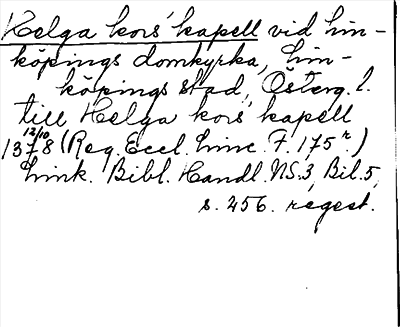 Helga kors' kapell vid Lin-
köpings domkyrka, Lin-
köpings stad, Österg. l.
till Helga kors' kapell
1378 12/10 (Reg. Eccl. Linc. F. 175 r.)
Link. Bibl. Handl. NS. 3, Bil. 5,
s. 256. regest.